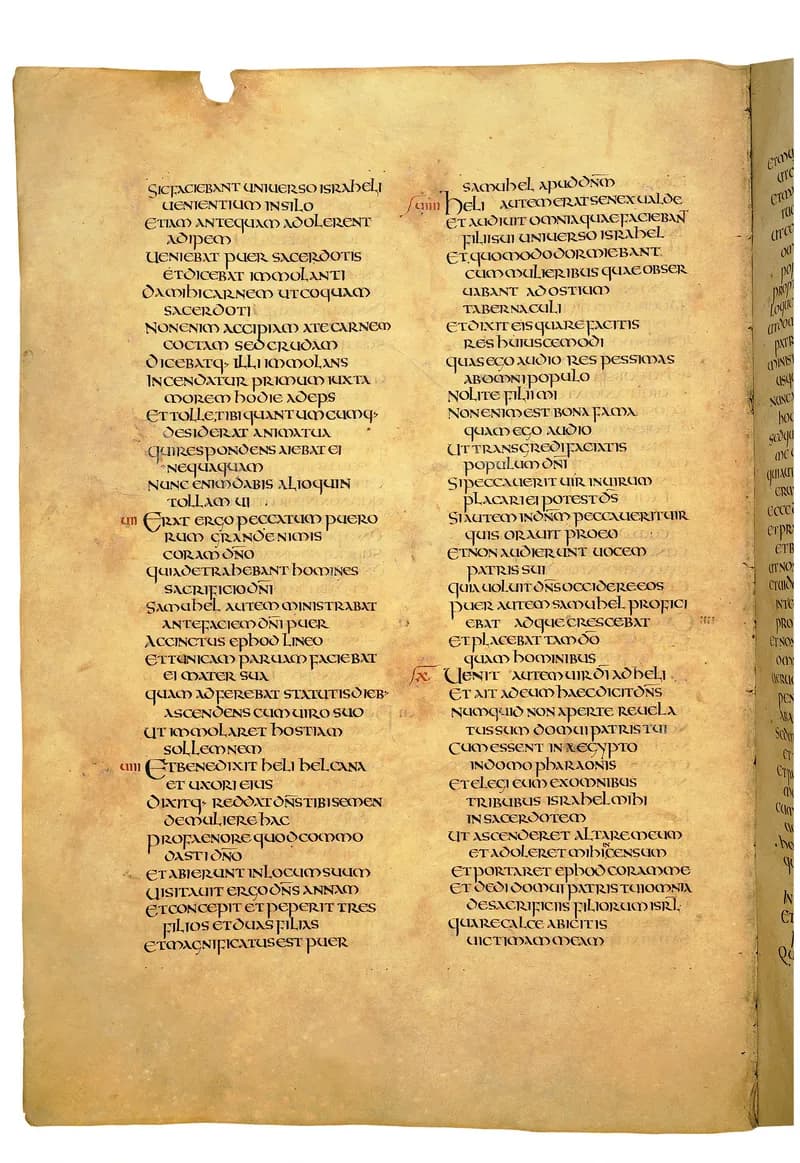 SIC FACIEBANT UNIUERSO ISRAHELI
UENIENTIUM IN SILO
ETIAM ANTEQUAM ADOLERENT
ADIPEM
UENIEBAT PUER SACERDOTIS
ET DICEBAT IMMOLANTI
DA MIHI CARNEM UT COQUAM
SACERDOTI
NON ENIM ACCIPIAM A TE CARNEM
COCTAM SED CRUDAM
DICEBATQ· ILLI IMMOLANS
INCENDATUR PRIMUM IUXTA
MOREM HODIE ADEPS
ET TOLLE TIBI QUANTUMCUMQ·
DESIDERAT ANIMA TUA
QUI RESPONDENS AIEBAT EI
NEQUAQUAM
NUNC ENIM DABIS ALIOQUIN
TOLLAM UI
UII ERAT ERGO PECCATUM PUERO
RUM GRANDE NIMIS
CORAM DN̅O
QUIA DETRAHEBANT HOMINES
SACRIFICIO DN̅I
SAMUHEL AUTEM MINISTRABAT
ANTE FACIEM DN̅I PUER
ACCINCTUS EPHOD LINEO
ET TUNICAM PARUAM FACIEBAT
EI MATER SUA
QUAM ADFEREBAT STATUTIS DIEB·
ASCENDENS CUM UIRO SUO
UT IMMOLARET HOSTIAM
SOLLEMNEM
UIII ET BENEDIXIT HELI HELCANA
ET UXORI EIUS
DIXITQ· REDDAT DN̅S TIBI SEMEN
DE MULIERE HAC
PRO FAENORE QUOD COMMO
DASTI DN̅O
ET ABIERUNT IN LOCUM SUUM
UISITAUIT ERGO DN̅S ANNAM
ET CONCEPIT ET PEPERIT TRES
FILIOS ET DUAS FILIAS
ET MAGNIFICATUS EST PUER
SAMUHEL APUD DN̅M
UIIII HELI AUTEM ERAT SENEX UALDE
ET AUDIUIT OMNIA QUAE FACIEBAN̅
FILII SUI UNIUERSO ISRAHEL
ET QUOMODO DORMIEBANT
CUM MULIERIBUS QUAE OBSER
UABANT AD OSTIUM
TABERNACULI
ET DIXIT EIS QUARE FACITIS
RES HUIUSCEMODI
QUAS EGO AUDIO RES PESSIMAS
AB OMNI POPULO
NOLITE FILII MI
NON ENIM EST BONA FAMA
QUAM EGO AUDIO
UT TRANSGREDI FACIATIS
POPULUM DN̅I
SI PECCAUERIT UIR IN UIRUM
PLACARI EI POTEST D̅S
SI AUTEM IN DN̅M PECCAUERIT UIR
QUIS ORAUIT PRO EO
ET NON AUDIERUNT UOCEM
PATRIS SUI
QUIA UOLUIT DN̅S OCCIDERE EOS
PUER AUTEM SAMUHEL PROFICI
EBAT ADQUE CRESCEBAT
ET PLACEBAT TAM D̅O
QUAM HOMINIBUS
X UENIT AUTEM UIR D̅I AD HELI
ET AIT AD EUM HAEC DICIT DN̅S
NUMQUID NON APERTE REUELA
TUS SUM DOMUI PATRIS TUI
CUM ESSENT IN AEGYPTO
IN DOMO PHARAONIS
ET ELEGI EUM EX OMNIBUS
TRIBUBUS ISRAHEL MIHI
IN SACERDOTEM
UT ASCENDERET ALTARE MEUM
ET ADOLERET MIHI INCENSUM
ET PORTARET EPHOD CORAM ME
ET DEDI DOMUI PATRIS TUI OMNIA
DE SACRIFICIIS FILIORUM ISRL̅
QUARE CALCE ABICITIS
UICTIMAM MEAM